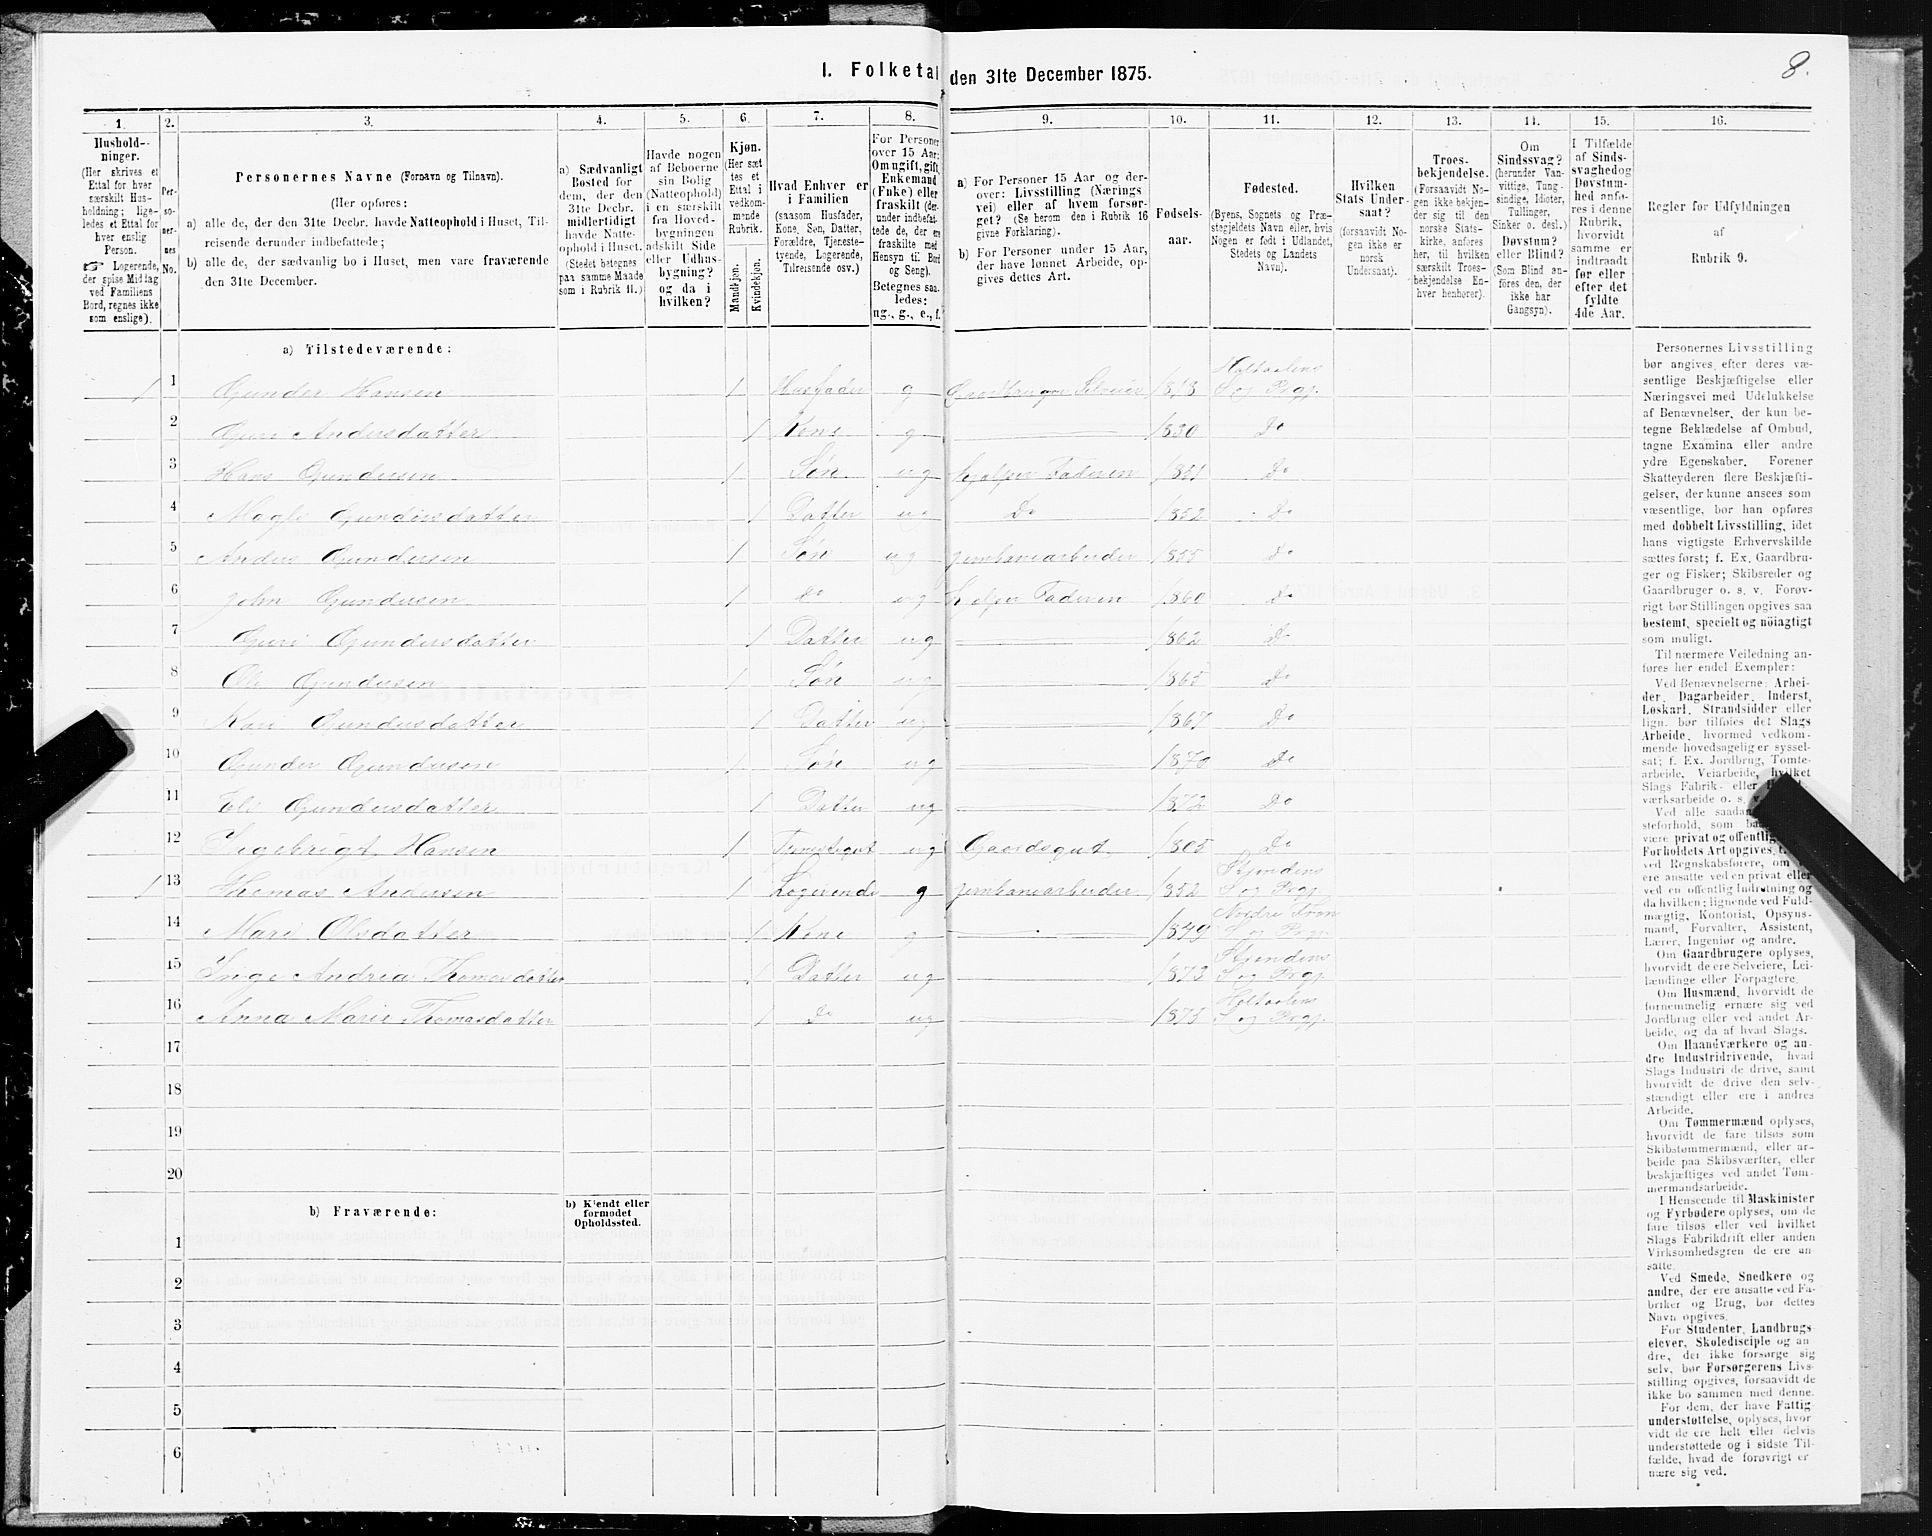 I. Folketal den 31te December 1875.
8.
1. 2. 3. 4. 5. 6. 7. 8. 9. 10. 11. 12. 13. 14. 15. 16.
Hushold-
ninger.
(Her skrives et
Ettal for hver
særskilt Hus-
holdning; lige-
ledes et Ettal for
hver enslig
Person.
☞ Logerende,
der spise Middag
ved Familiens
Bord, regnes ikke
som enslige).
Per-
so-
ner-
nes
No.
Personernes Navne (Fornavn og Tilnavn).
(Her opføres:
a) alle de, der den 31te Decbr. havde Natteophold i Huset, Til-
reisende derunder indbefattede;
b) alle de, der sædvanlig bo i Huset, men vare fraværende
den 31te December.
a) Sædvanligt
Bosted for
dem, der den
31te Decbr.
midlertidigt
havde Natte-
ophold i Huset.
(Stedet betegnes
paa samme Maade
som i Rubrik 11.)
Havde nogen
af Beboerne
sin Bolig
(Natteophold)
i en særskilt
fra Hoved-
bygningen
adskilt Side
eller Udhus-
bygning?
og da i
hvilken?
Kjøn.
(Her sæt
tes et
Ettal i
vedkom-
mende
Rubrik.
Mandkjøn.
Kvindekjøn.
Hvad Enhver er
i Familien
(saasom Husfader,
Kone, Søn, Datter,
Forældre, Tjeneste-
tyende, Logerende,
Tilreisende osv.)
For Personer
over 15 Aar:
Om ugift, gift,
Enkemand
(Enke) eller
fraskilt (der-
under indbefat-
tede de, der ere
fraskilte med
Hensyn til Bord
og Seng).
Betegnes saa-
ledes:
ug., g., e., f.
a) For Personer 15 Aar og der-
over: Livsstilling (Nærings
vei) eller af hvem forsør-
get? (Se herom den i Rubrik 16
givne Forklaring).
b) For Personer under 15 Aar,
der have lønnet Arbeide, op-
gives dettes Art.
Fødsels-
aar.
Fødested.
(Byens, Sognets og Præ-
stegjeldets Navn eller, hvis
Nogen er født i Udlandet,
Stedets og Landets
Navn).
Hvilken
Stats Under-
saat?
(forsaavidt No-
gen ikke er
norsk
Undersaat).
Troes-
bekjendelse.
(Forsaavidt No-
gen ikke bekjen-
der sig til den
norske Stats-
kirke, anføres
her, til hvilken
særskilt Troes-
bekjendelse En-
hver henhører).
Om
Sindssvag?
(herunder Van-
vittige, Tung-
sindige, Idioter,
Tullinger,
Sinker o. desl.)
Døvstum?
eller Blind?
(Som Blind an-
føres den, der
ikke har
Gangsyn).
I Tilfælde
af Sinds-
svaghed og
Døvstum-
hed anfø-
res i denne
Rubrik,
hvorvidt
samme er
indtraadt
før eller
efter det
fyldte
4de Aar.
Regler for Udfyldningen
af
Rubrik 9.
a) Tilstedeværende:
1 1 Gunder Hansen 1 Husfader g Gaardbruger Selveier 1818 Holtaalens S og Prgj.
2 Guri Andersdatter 1 Kone g 1830 Do
3 Hans Gundersen 1 Søn ug hjælper Faderen 1851 Do
4 Magli Gundersdatter 1 Datter ug Do 1852 Do
5 Anders Gundersen 1 Søn ug jernbanearbeider 1855 Do
6 John Gundersen 1 do ug hjelper Faderen 1860 Do
7 Guri Gundersdatter 1 Datter ug 1862 Do
8 Ole Gundersen 1 Søn ug 1865 Do
9 Kari Gundersdatter 1 Datter ug 1867 Do
10 Gunder Gundersen 1 Søn ug 1870 Do
11 Eli Gundersdatter 1 Datter ug 1872 Do
12 Ingebrigt Hansen 1 Tjenestegut ug Gaardsgut 1805 Do
1 13 Thomas Andersen 1 Logerende g jernbanearbeider 1852 Stjordens S og Prgj.
14 Mari Olsdatter 1 Kone g 1849 Nordre Fron S og Prgj.
15 Inge Andrea Thomasdatter 1 Datter ug 1873 Stjordens S og Prgj.
16 Anna Marie Thomasdatter 1 Do ug 1875 Holtaalens S og Prgj.
17
18
19
20
b) Fraværende:
b) Kjendt eller
formodet
Opholdssted.
1
2
3
4
5
6
Personernes Livsstilling
bør angives efter deres væ-
sentlige Beskjæftigelse eller
Næringsvei med Udelukkelse
af Benævnelser, der kun be-
tegne Beklædelse af Ombud,
tagne Examina eller andre
ydre Egenskaber. Forener
Skatteyderen flere Beskjæfti-
gelser, der kunne ansees som
væsentlige, bør han opføres
med dobbelt Livsstilling, idet
hans vigtigste Erhvervskilde
sættes først; f. Ex. Gaardbru-
ger og Fisker; Skibsreder og
Gaardbruger o. s. v. Forøv-
rigt bør Stillingen opgives saa
bestemt, specielt og nöiagtigt
som muligt.
Til nærmere Veiledning an-
føres her endel Exempler:
Ved Benævnelserne: Arbei-
der, Dagarbeider, Inderst,
Løskarl, Strandsidder eller
lign. bør tilføies det Slags
Arbeide, hvormed vedkom-
mende hovedsagelig er syssel-
sat; f. Ex. Jordbrug, Tomte-
arbeide, Veiarbeide, hvilket
Slags Fabrik- eller
værksarbeide o. s. v.
Ved alle saadan
steforhold, som
være privat og offentlig
Forholdets Art opgives,
ved Regnskabsførere, om
ere ansatte ved en privat eller
ved en offentlig Indretning og
da hvilken; lignende ved Fuld-
mægtig, Kontorist, Opsyns-
mand, Forvalter, Assistent,
Lærer, Ingeniør og andre.
Om Gaardbrugere oplyses,
hvorvidt de ere Selveiere, Lei-
lændinge eller Forpagtere.
Om Husmænd, hvorvidt de
fornemmelig ernære sig ved
Jordbrug eller ved andet Ar-
beide, og da af hvad Slags.
Om Haandværkere og an-
dre Industridrivende, hvad
Slags Industri de drive, samt
hvorvidt de drive den selv-
stændigt eller ere i andres
Arbeide.
Om Tømmermænd oplyses,
hvorvidt de fare tilsøs som
Skibstømmermænd, eller ar-
beide paa Skibsværfter, eller
beskjæftiges ved andet Tøm-
mermandsarbeide.
I Henseende til Maskinister
og Fyrbødere oplyses, om de
fare tilsøs eller ved hvilket
Slags Fabrikdrift eller anden
Virksomhedsgren de ere an-
satte.
Ved Smede, Snedkere og
andre, der ere ansatte ved Fa-
briker og Brug, bør dettes
Navn opgives.
For Studenter, Landbrugs-
elever, Skoledisciple og an-
dre, der ikke forsørge sig
selv, bør Forsørgerens Livs-
stilling opgives, forsaavidt de
ikke bo sammen med denne.
For dem, der have Fattig-
understøttelse, oplyses, hvor
vidt de ere helt eller delvis
understøttede og i sidste Til-
fælde, hvad de forøvrigt er
nære sig ved.